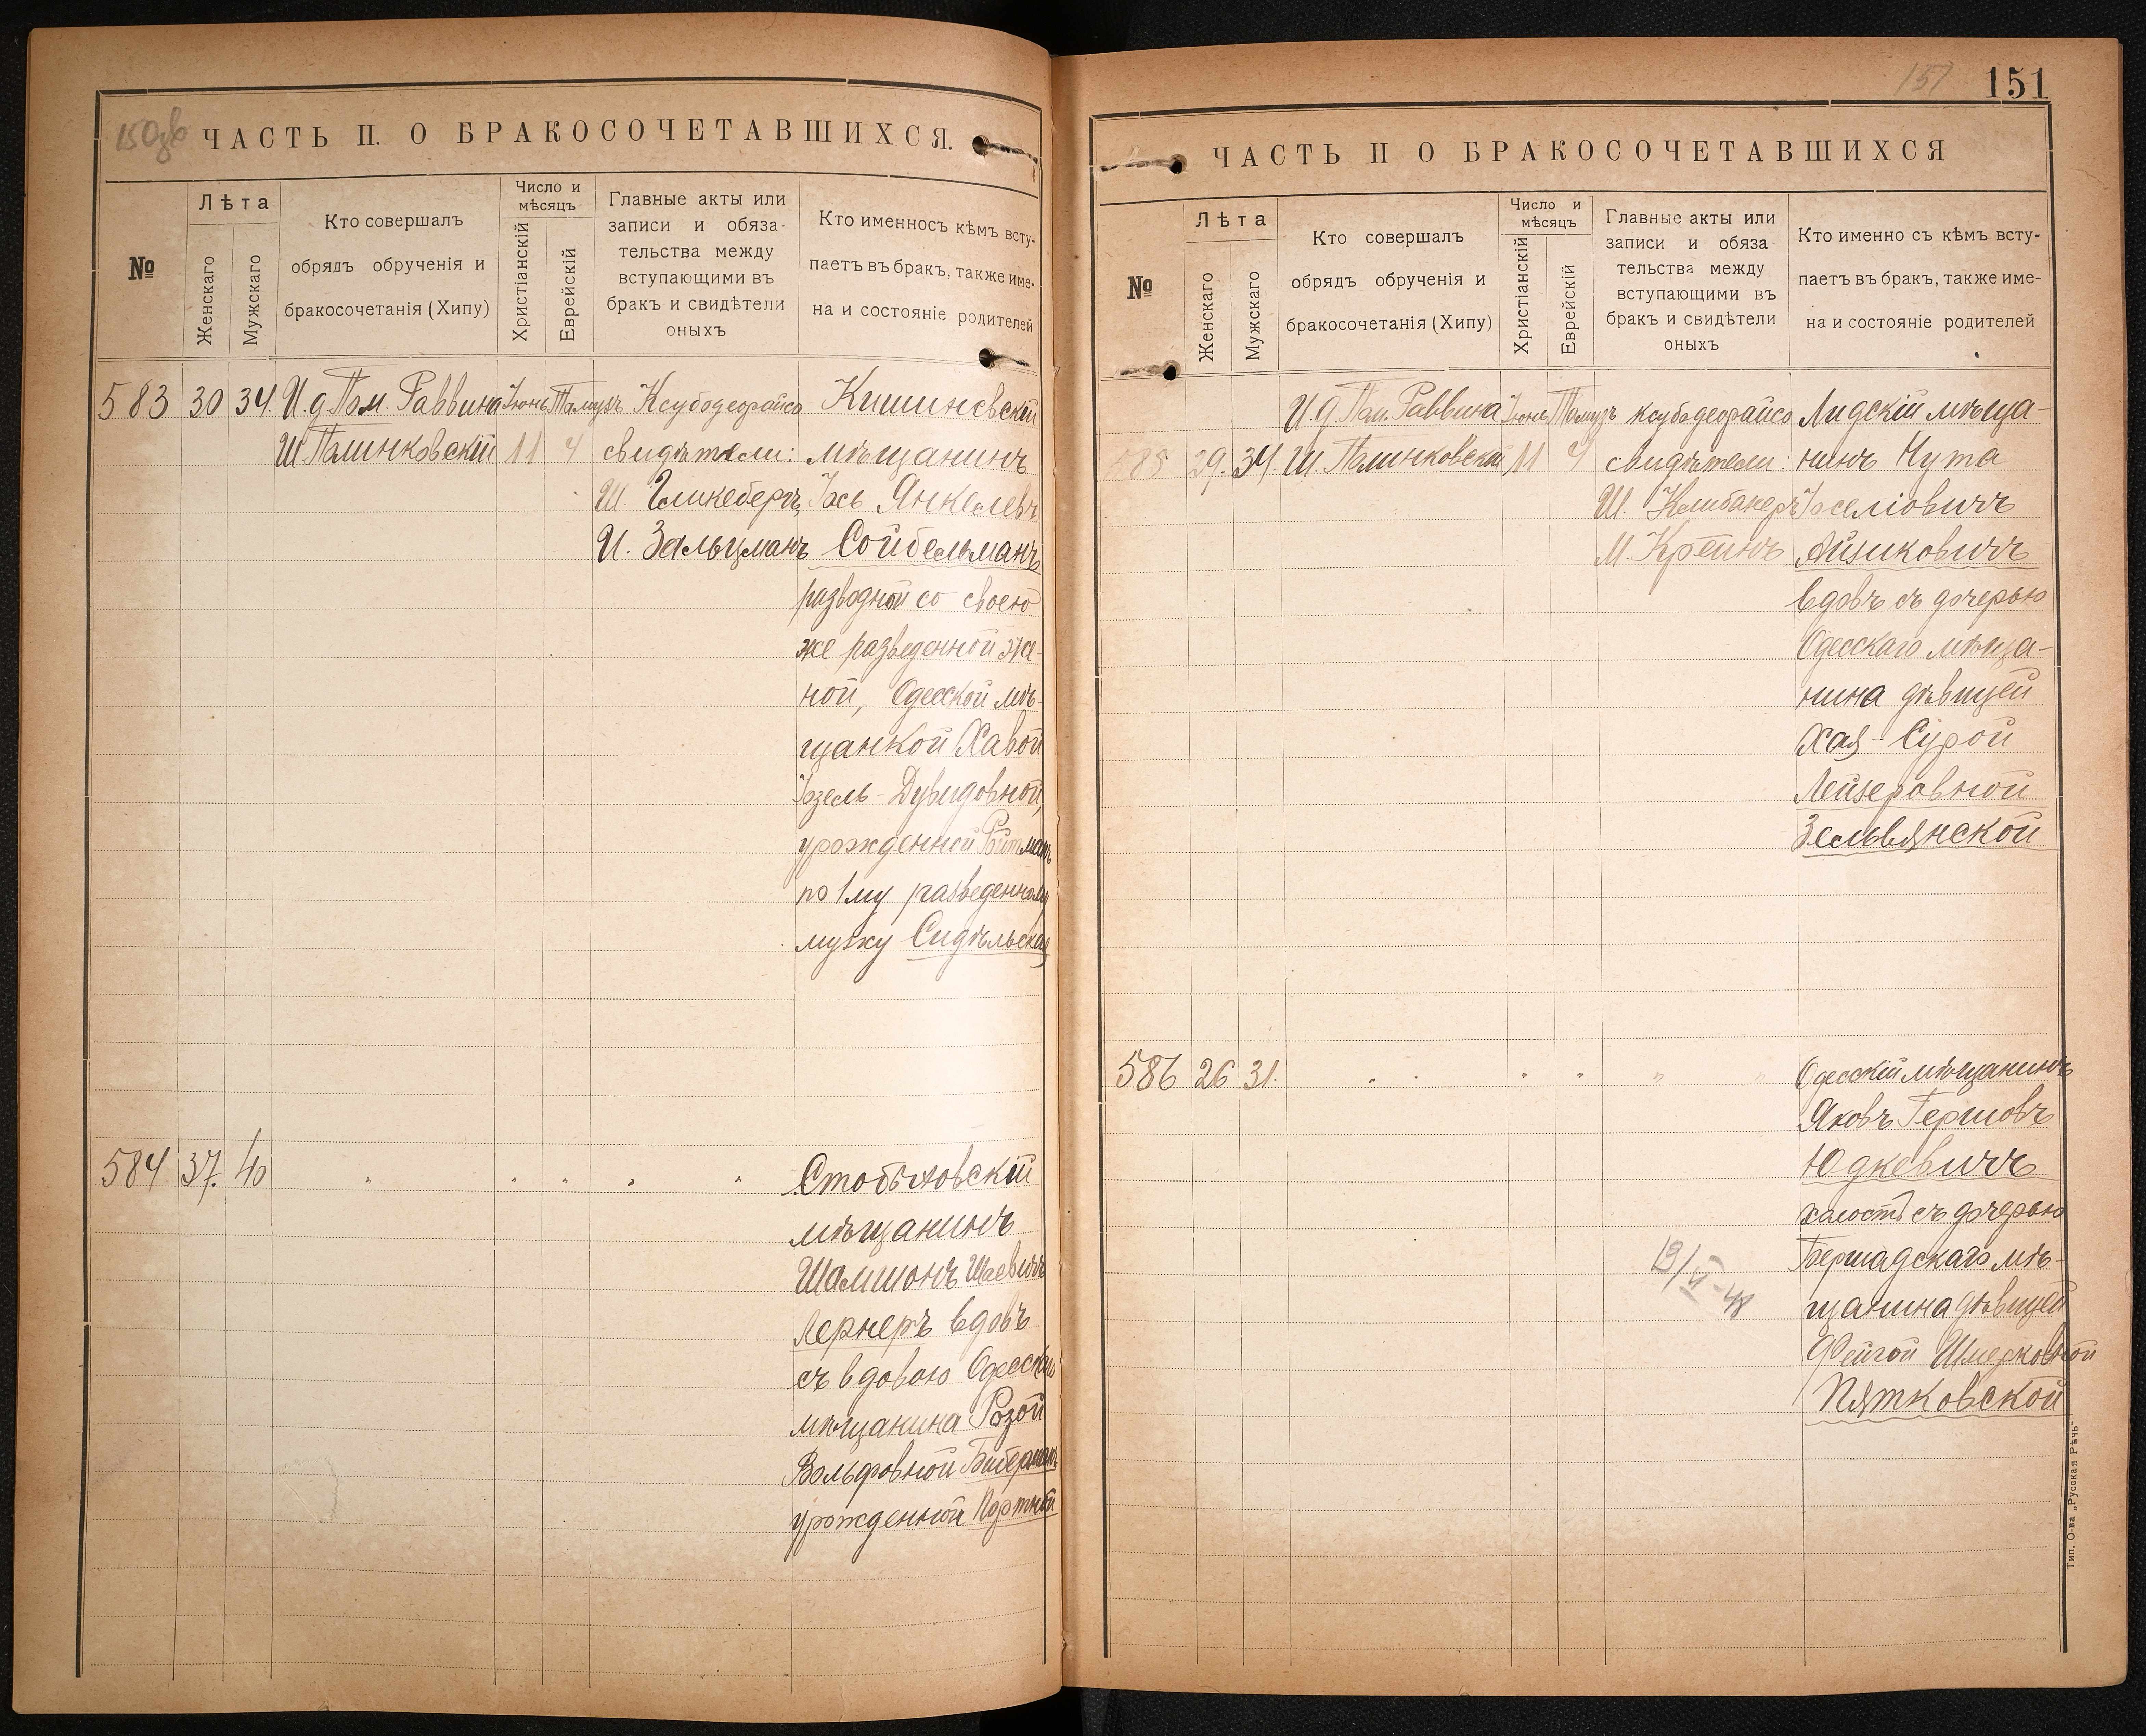 150об
ЧАСТЬ II. О БРАКОСОЧЕТАВШИХСЯ.
№
Лѣта
Женскаго
Мужскаго
Кто совершалъ
обрядъ обрученія и
бракосочетанія (Хипу)
Число и
мѣсяцъ
Христіанскій
Еврейскій
Главные акты или
записи и обяза-
тельства между
вступающими въ
бракъ и свидѣтели
оныхъ
Кто именносъ кѣмъ всту-
паетъ въ бракъ, также име-
на и состояніе родителей
583 30 34 И.д. Пом. Раввина Іюнь Тамузъ Ксубодеорайсо Кишиневскій
Ш Палинковскій 11 4 свидѣтели: мѣщанинъ
Ш. Гликбергъ, Іось Янкелевъ
И. Зальцманъ Сойбельманъ
разводной со своею
же разведенной же-
ной, Одесской мѣ-
щанкой Хавой
Іозель-Дувидовной,
урожденной Ройтманъ
по 1му разведенному
мужу Сидѣльская
584 37. 40 " " " " " мѣщанинъ
Шамшонъ Шаевичъ
Лернеръ вдовъ
съ вдовою Одесскаго
мѣщанина Розой
Вольфовной Биберманъ
урожденной Портной
151
151
ЧАСТЬ II О БРАКОСОЧЕТАВШИХСЯ
№
Лѣта
Женскаго
Мужскаго
Кто совершалъ
обрядъ обрученія и
бракосочетанія (Хипу)
Число и
мѣсяцъ
Христіанскій
Еврейскій
Главные акты или
записи и обяза
тельства между
вступающими въ
бракъ и свидѣтели
оныхъ
Кто именно съ кѣмъ всту-
паетъ въ бракъ, также име-
на и состояніе родителей
И.д. Пом. Раввина Іюнь Тамузъ ксубодеорайсо Лидскій мѣща-
585 29. 34. Ш. Палинковскій 11 4 свидѣтели: нинъ Нута
Ш. Клибанеръ Іоселіовичъ
М. Крейнъ Айзиковичъ
вдовъ съ дочерью
Одесскаго мѣща-
нина дѣвицей
Хая-Сурой
Лейзеровной
Зельвянской
586 26 31. " " " " " Одесскій мѣщанинъ
Яковъ Гершовъ
Юдкевичъ
холостъ съ дочерью
Бершадскаго мѣ-
щанина дѣвицей
Фейгой Шмерковной
Пятковской
Тип. О-ва „Русская Рѣчь"